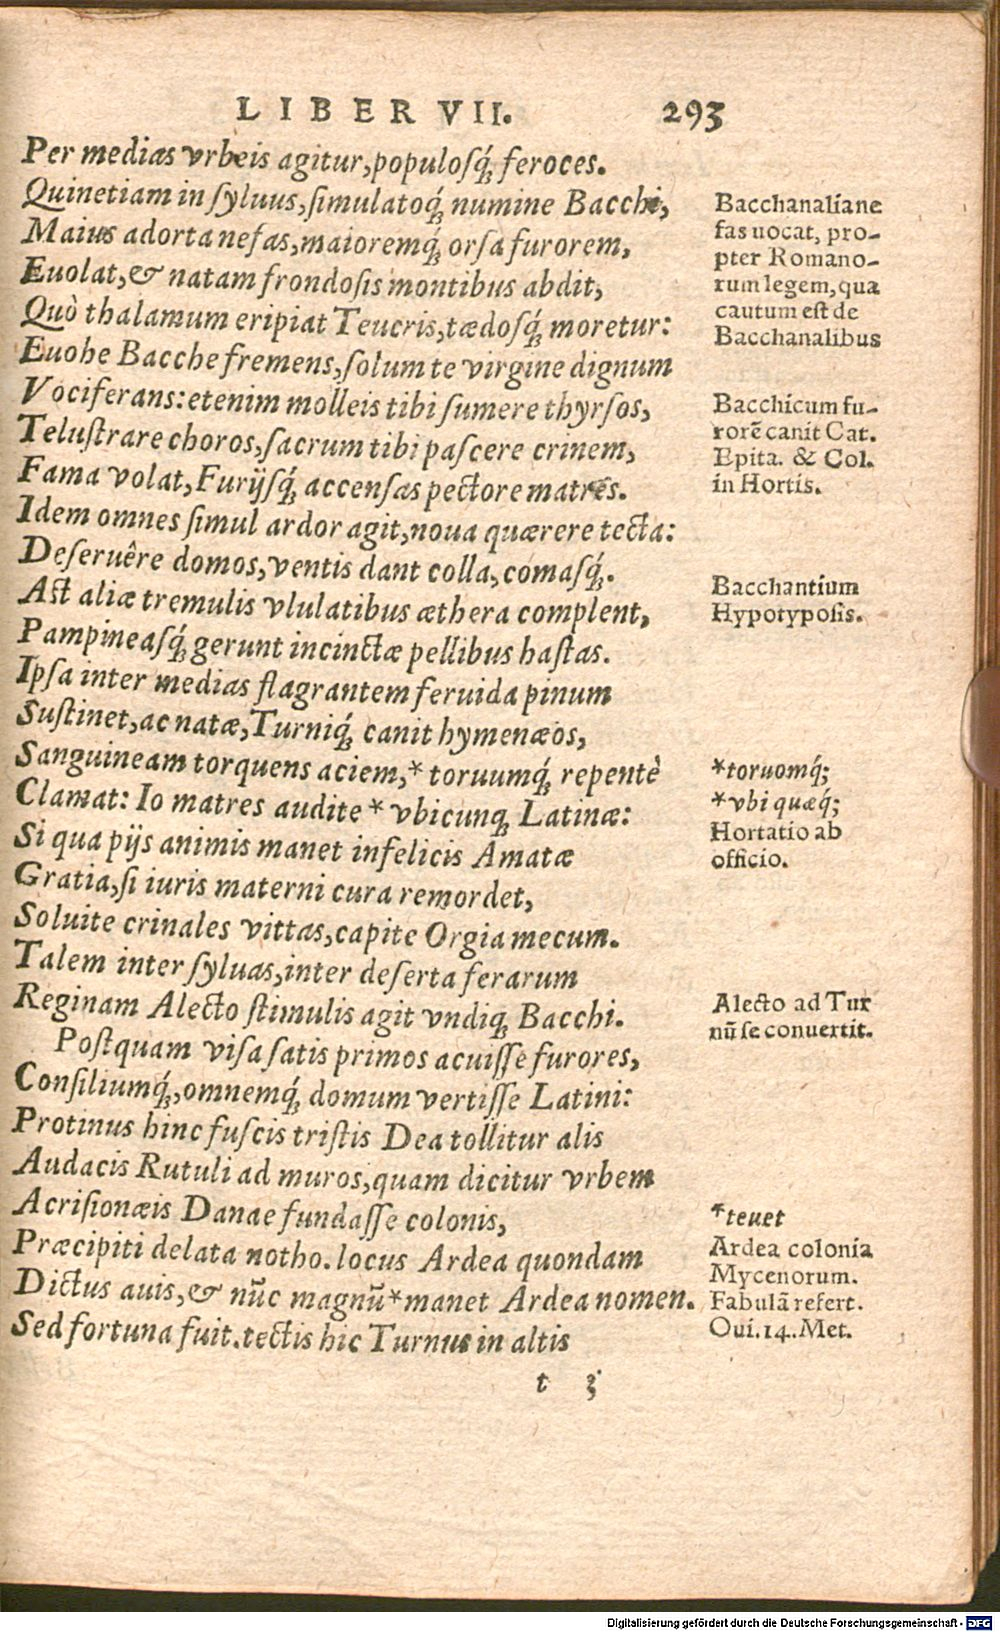 LIBER VII. 293
Per medias vrbeis agitur, populosq́; feroces.
Quinetiam in syluus, simulatoq́; numine Bacchi,
Maius adorta nefas, maioremq́; orsa furorem,
Euolat, & natam frondosis montibus abdit,
Quò thalamum eripiat Teucris, tædosq́; moretur:
Euohe Bacche fremens, solum te virgine dignum
Vociferans: etenim molleis tibi sumere thyrsos,
Te lustrare choros, sacrum tibi pascere crinem,
Fama volat, Furijsq́; accensas pectore matres.
Idem omnes simul ardor agit, noua quærere tecta:
Deseruêre domos, ventis dant colla, comasq́;.
Ast aliæ tremulis vlulatibus æthera complent,
Pampineasq́; gerunt incinctæ pellibus hastas.
Ipsa inter medias flagrantem feruida pinum
Sustinet, ac natæ, Turniq́; canit hymenæos,
Sanguineam torquens aciem, * toruumq́; repentè
Clamat: Io matres audite * vbicunq; Latinæ:
Si qua pijs animis manet infelicis Amatæ
Gratia, si iuris materni cura remordet,
Soluite crinales vittas, capite Orgia mecum.
Talem inter syluas, inter deserta ferarum
Reginam Alecto stimulis agit vndiq; Bacchi.
Postquam visa satis primos acuisse furores,
Consiliumq́;, omnemq́; domum vertisse Latini:
Protinus hinc fuscis tristis Dea tollitur alis
Audacis Rutuli ad muros, quam dicitur vrbem
Acrisionæis Danae fundasse colonis,
Præcipiti delata notho. locus Ardea quondam
Dictus auis, & nūc magnū * manet Ardea nomen.
Sed fortuna fuit. tectis hic Turnus in altis
t 3
Bacchanaliane
fas uocat, pro-
pter Romano-
rum legem, qua
cautum est de
Bacchanalibus
Bacchicum fu-
rorē canit Cat.
Epita. & Col.
in Hortis.
Bacchantium
Hypotyposis.
*toruomq́;
*vbi quæq́;
Hortatio ab
officio.
Alecto ad Tur
nū se conuertit.
*tenet
Ardea colonia
Mycenorum.
Fabulā refert.
Oui. 14. Met.
Digitalisierung gefördert durch die Deutsche Forschungsgemeinschaft - DFG